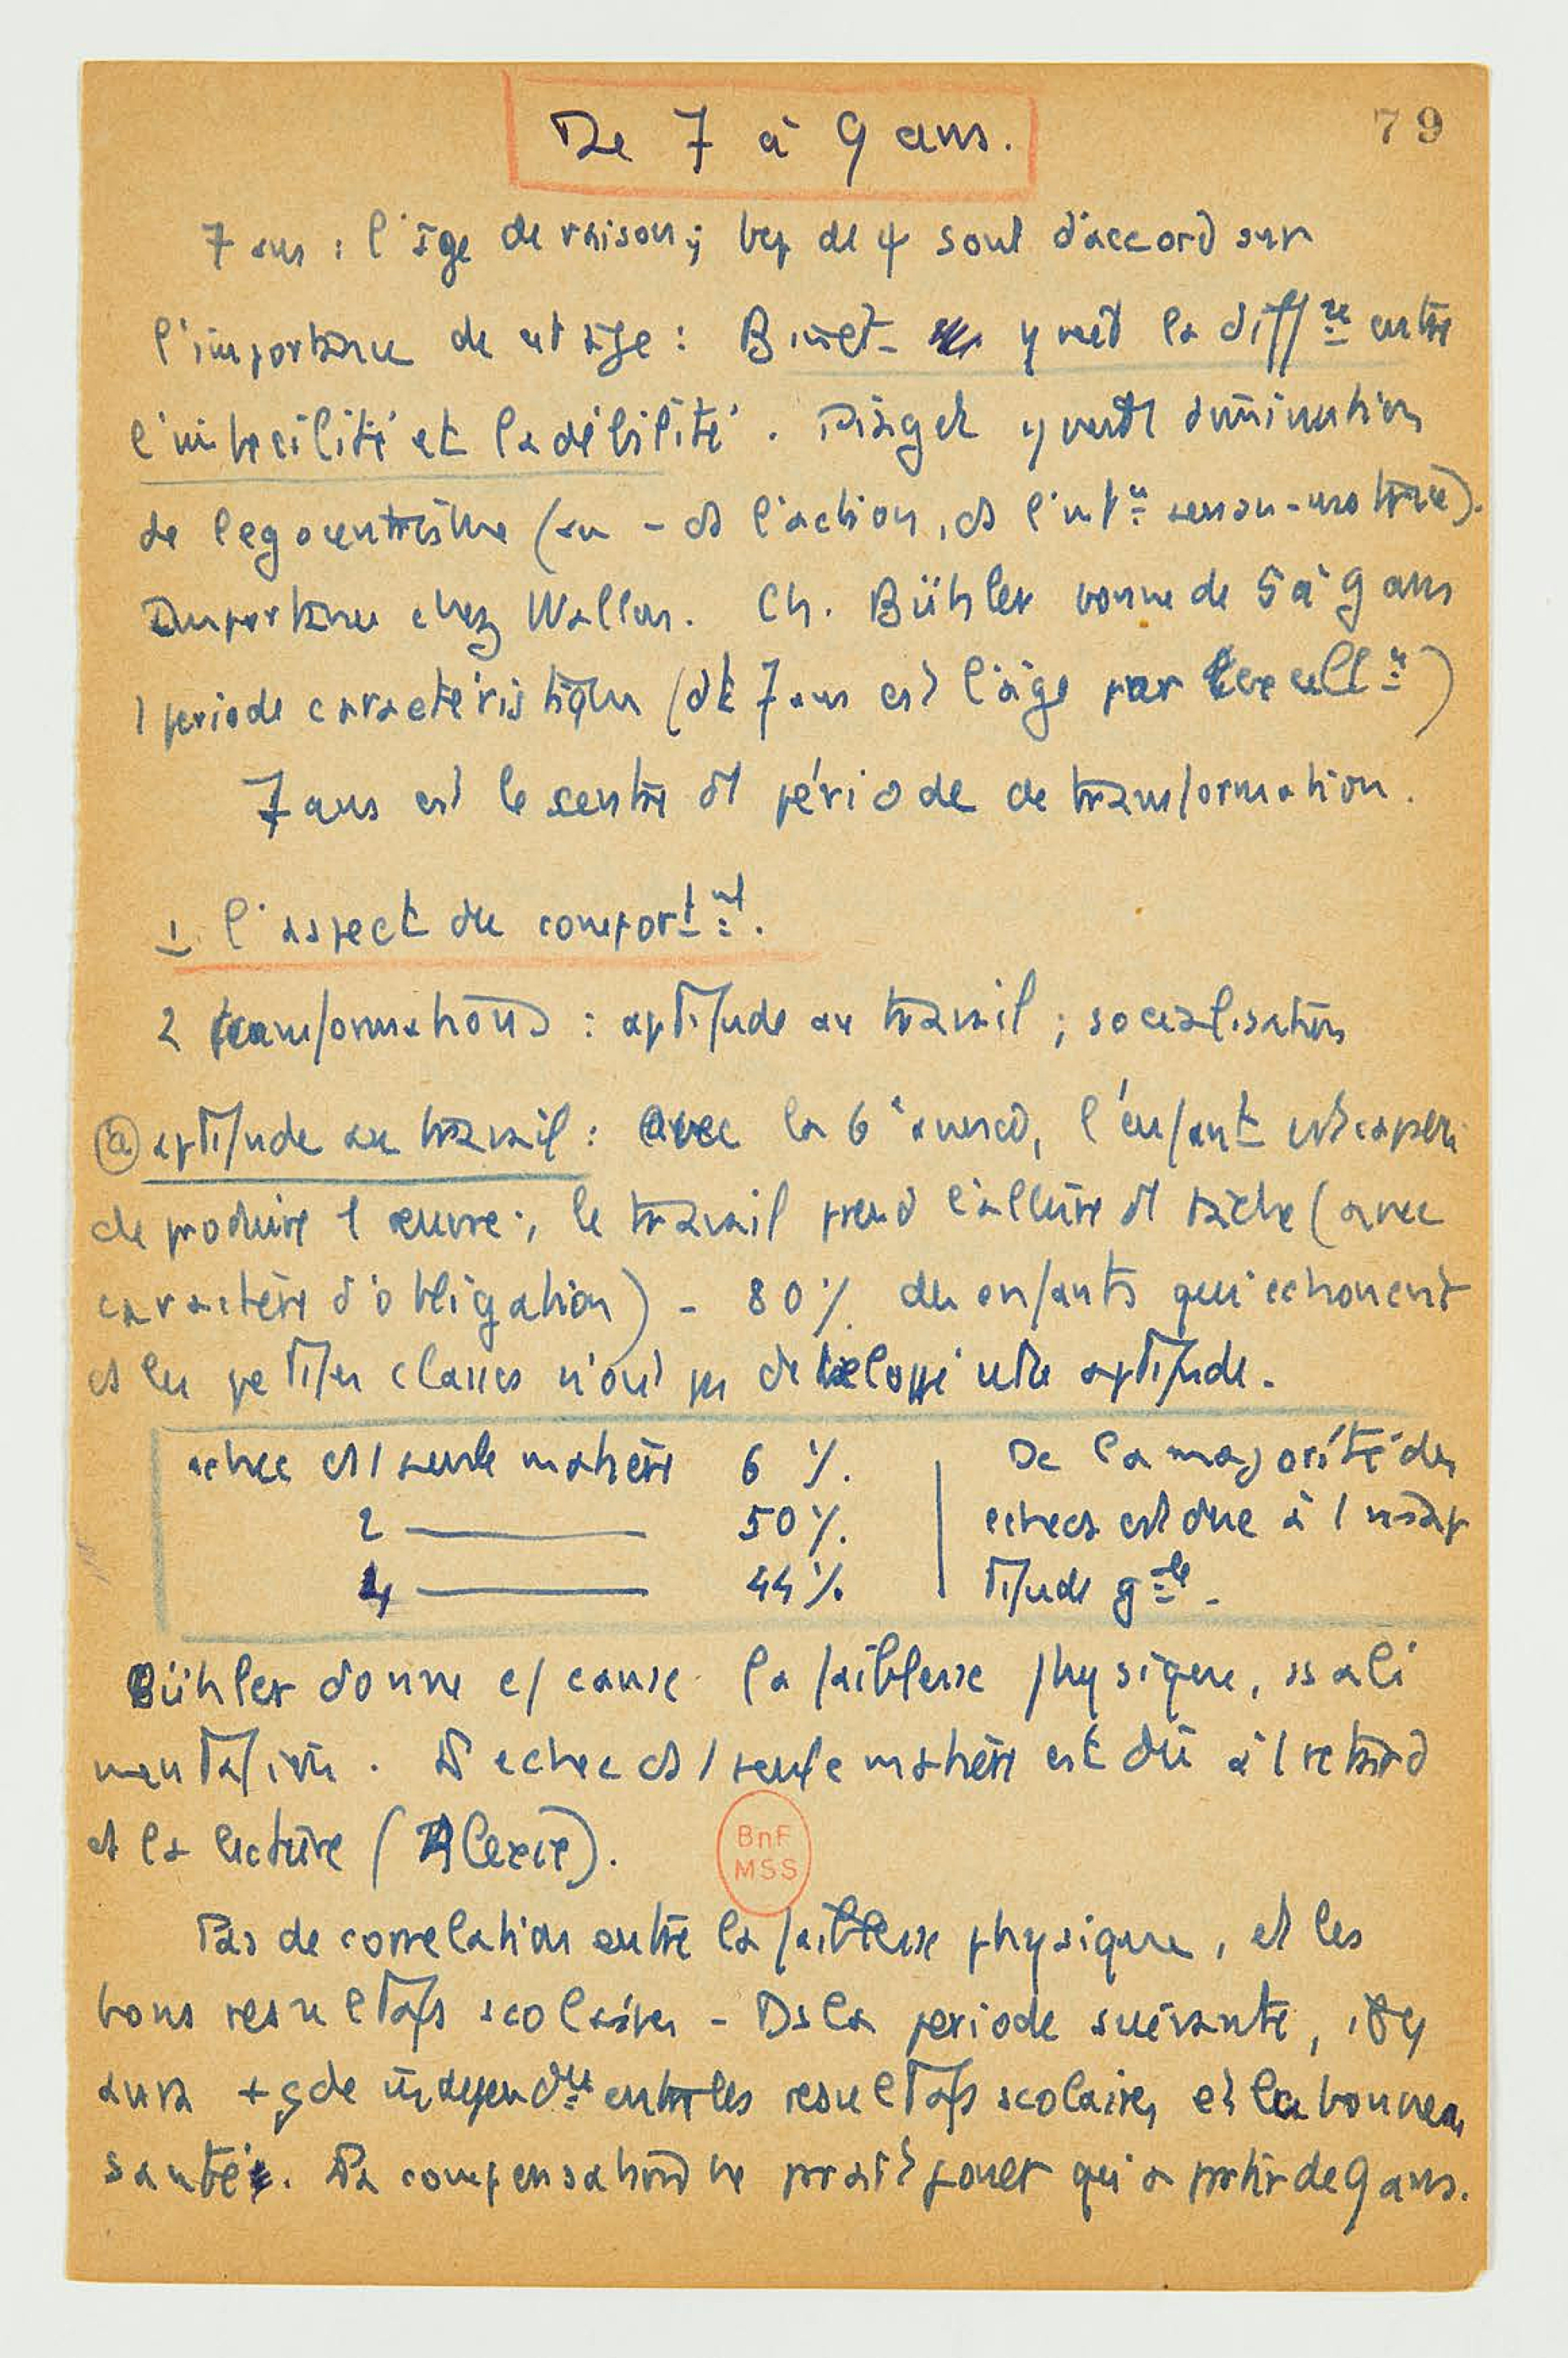 De 7 à 9 ans.
79
7 ans : l'âge de raison ; bcp de ψ sont d'accord sur
l'importance de cet âge : Binet y met la diffce entre
l'imbecilité et la débilité. Piaget y voit diminution
de l'egocentrisme (au - ds l'action, ds l'intce senso-motrice).
Importance chez Wallon. Ch. Bühler donne de 5 à 9 ans
1 periode caractéristique (dt 7 ans est l'âge par excellce)
7 ans est le centre d1 période de transformation.
1 l'aspect du comportmt.
2 transformations : aptitude au travail ; socialisation
(a) aptitude au travail : avec la 6e année, l'enfant est capable
de produire 1 œuvre ; le travail prend l'allure d1 tâche (avec
caractère d'obligation) - 80% des enfants qui echouent
ds les petites classes n'ont pas développé cette aptitude.
echec ds 1 seule matière 6 %.
2 —— 50 %.
4 —— 44 %.
De la majorité des
echecs est due à 1 inap
titude gale.
Bühler donne c/ cause la faiblesse physique, ss ali
mentation. echec ds 1 seule matière est dû à 1 retard
ds la lecture (Alexie).
BnF
MSS
Pas de correlation entre la faiblesse physique, et les
bons resultats scolaires - Ds la periode suivante, il y
aura + gde independce entre les resultats scolaires et la bonne
santé. La compensation ne parait jouer qu'a partir de 9 ans.